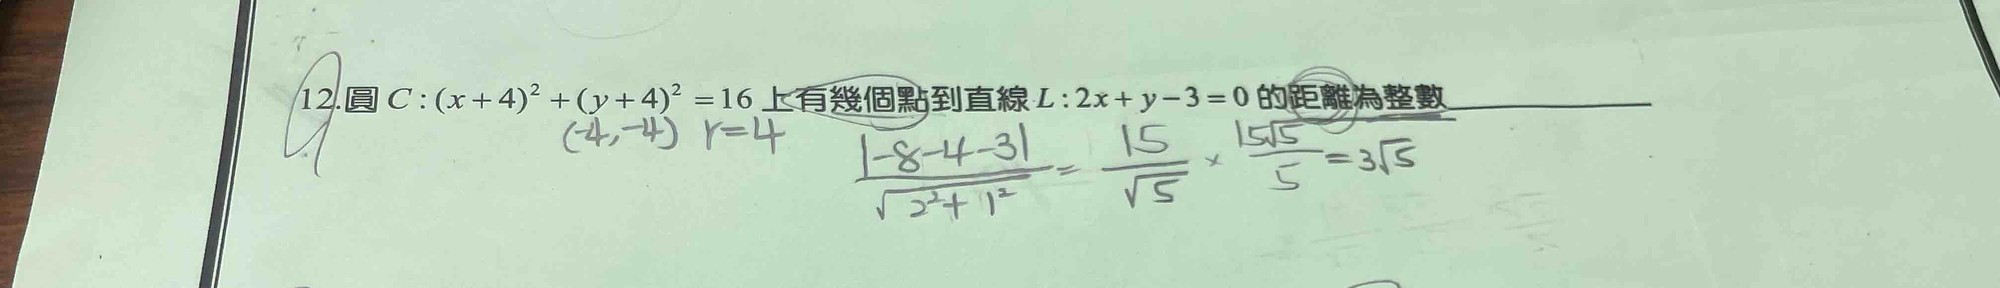 12.圓 C : (x+4)² + (y+4)² = 16 上有幾個點到直線 L : 2x + y − 3 = 0 的距離為整數
(-4, -4) r=4
|-8-4-3| / √2²+1² = 15/√5 × 15√5/5 = 3√5